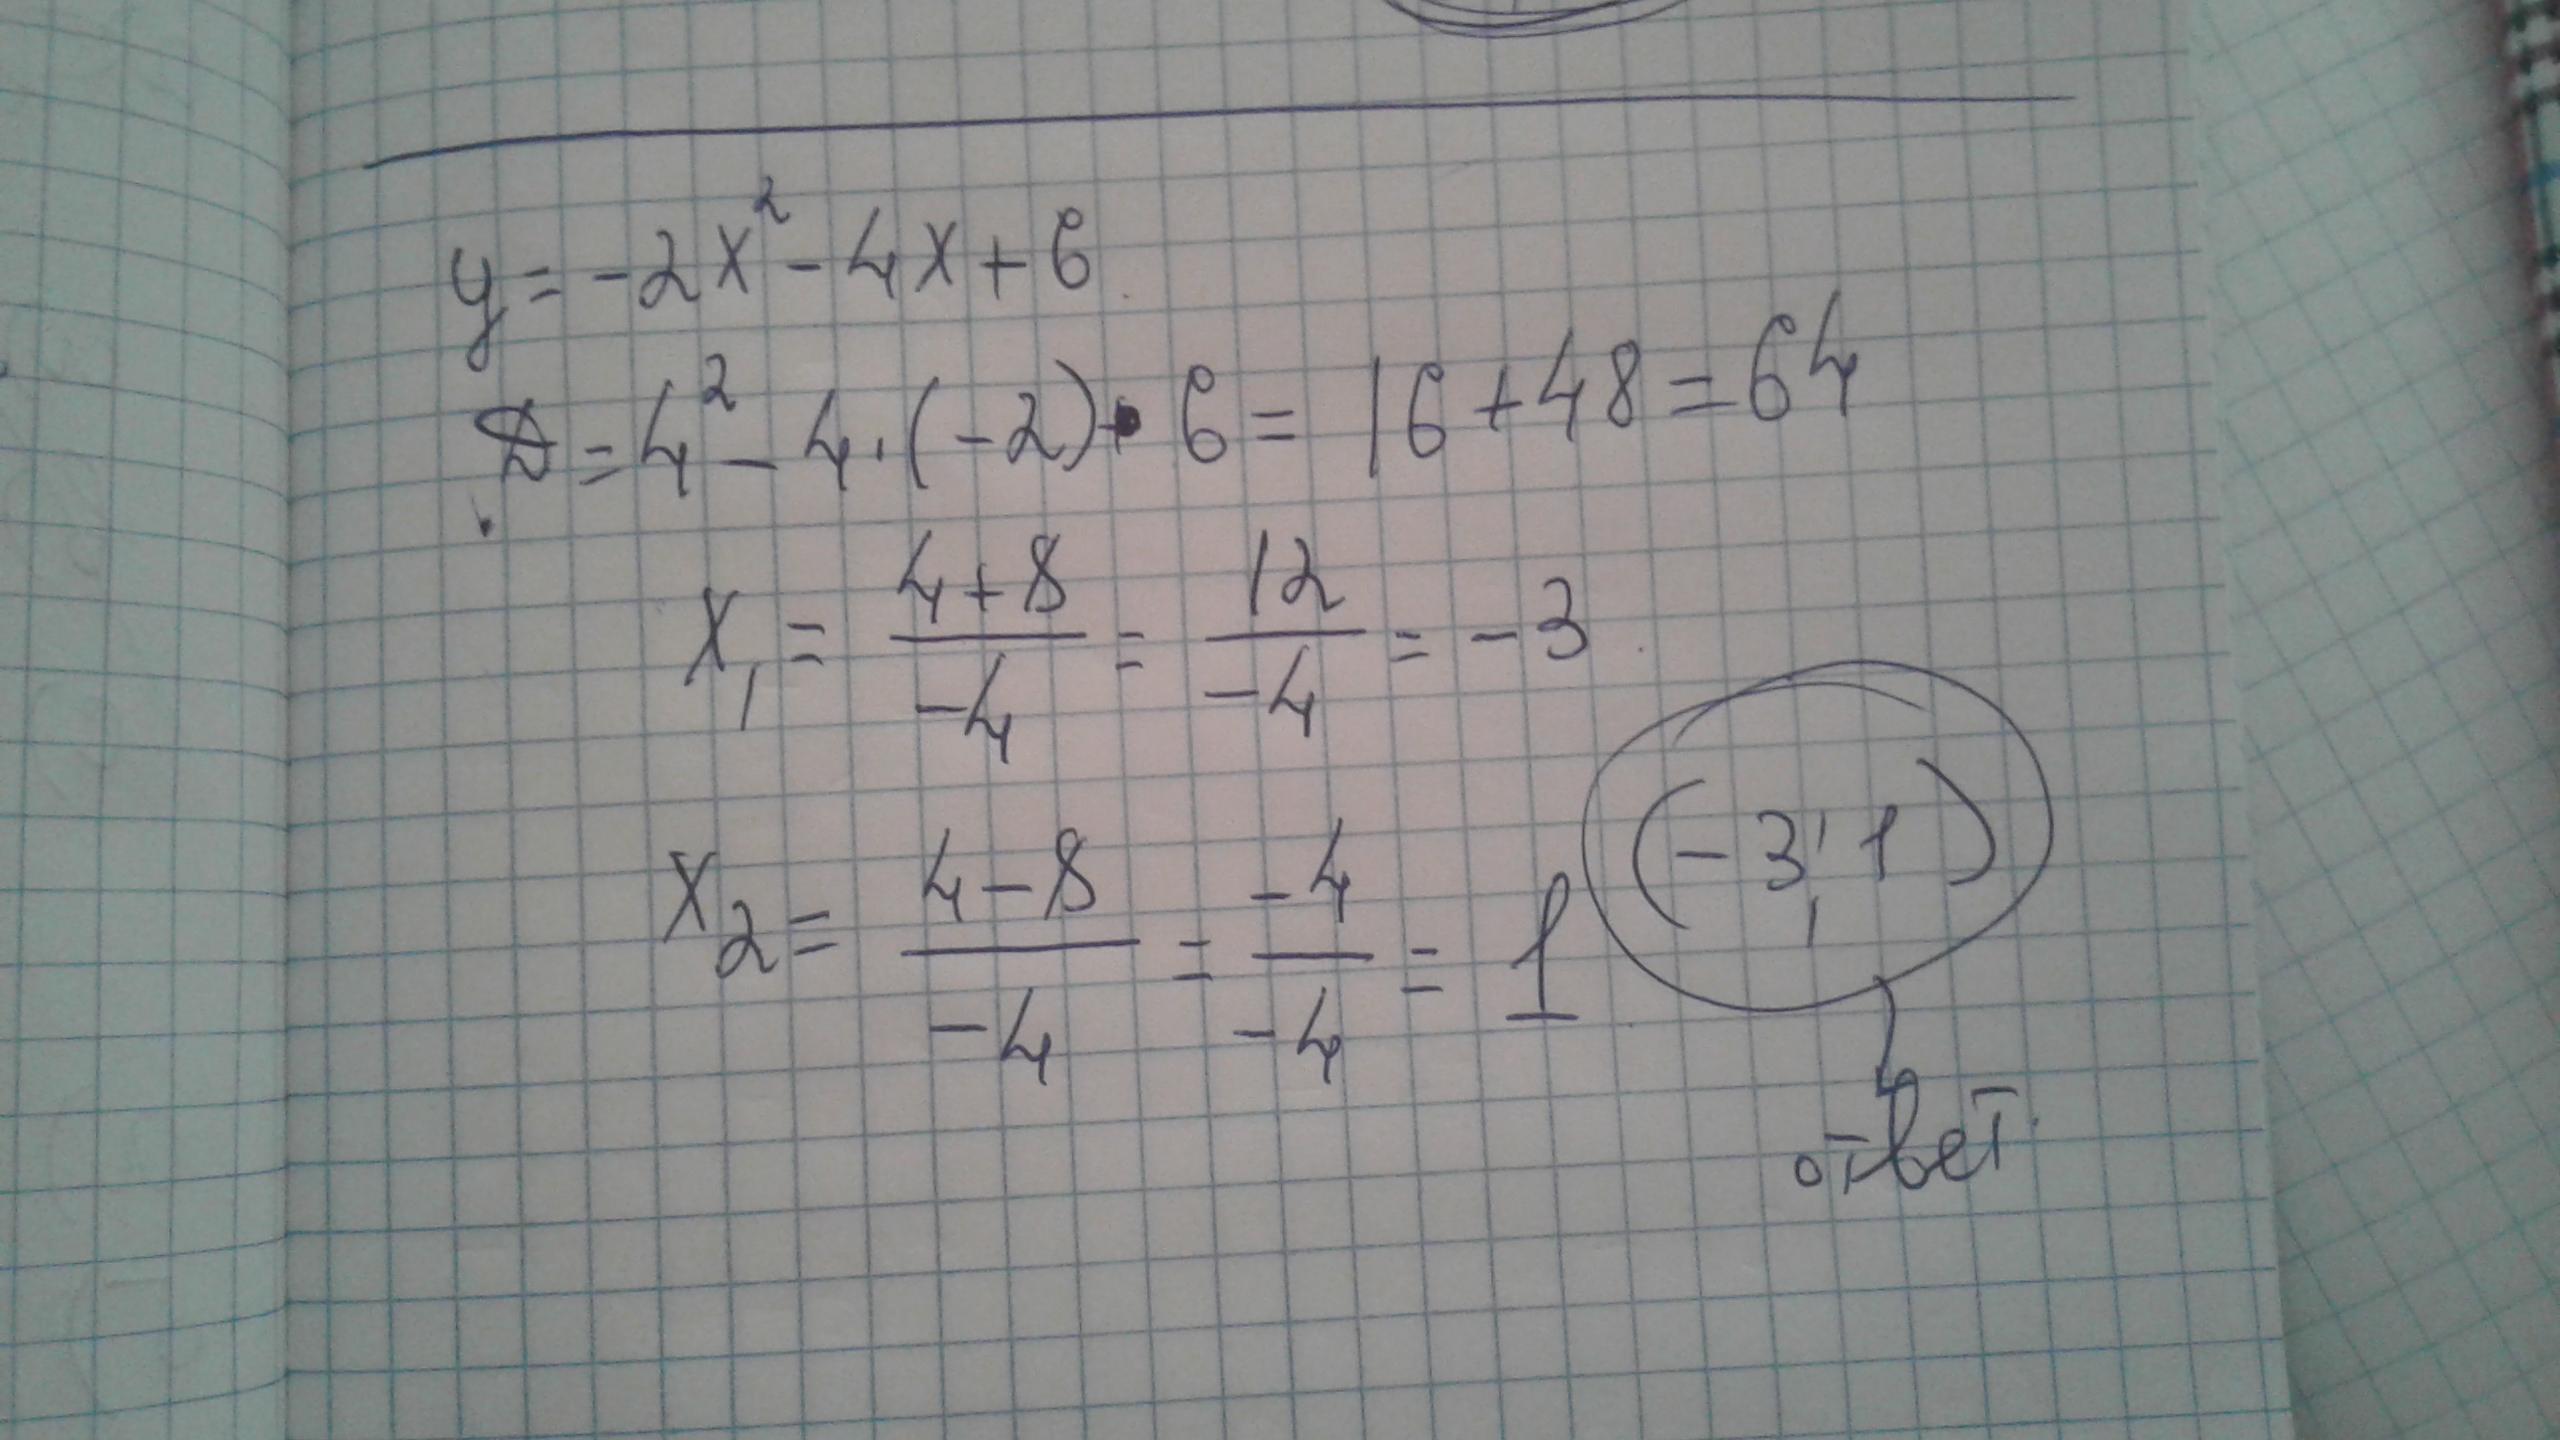 y = -2x² - 4x + 6
D = 4² - 4 · (-2) · 6 = 16 + 48 = 64
x₁ = (4+8)/(-4) = 12/(-4) = -3
x₂ = (4-8)/(-4) = (-4)/(-4) = 1
(-3; 1)
ответ